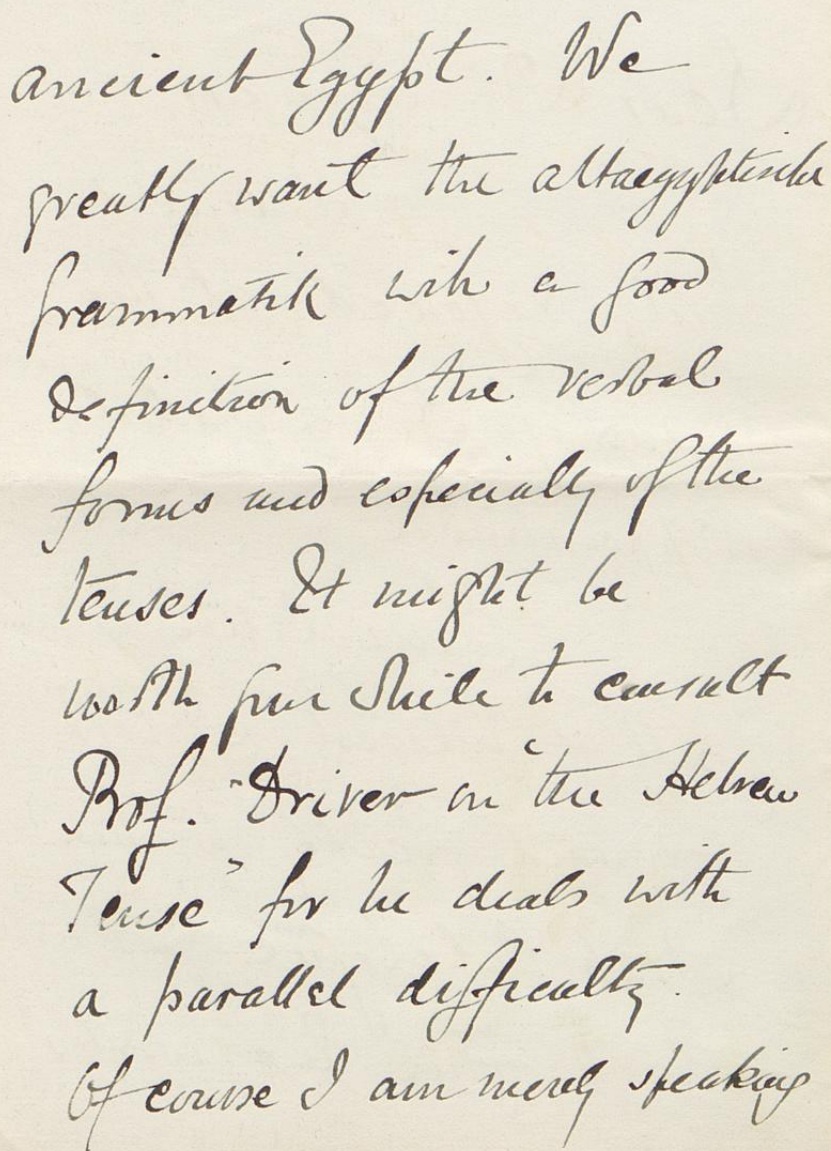 ancient Egypt. We
greatly want the altaegyptische
grammatik with a good
definition of the verbal
forms and especially of the
tenses. It might be
worth your while to consult
Prof. Driver on "the Hebrew
Tense" for he deals with
a parallel difficulty.
Of course I am merely speaking